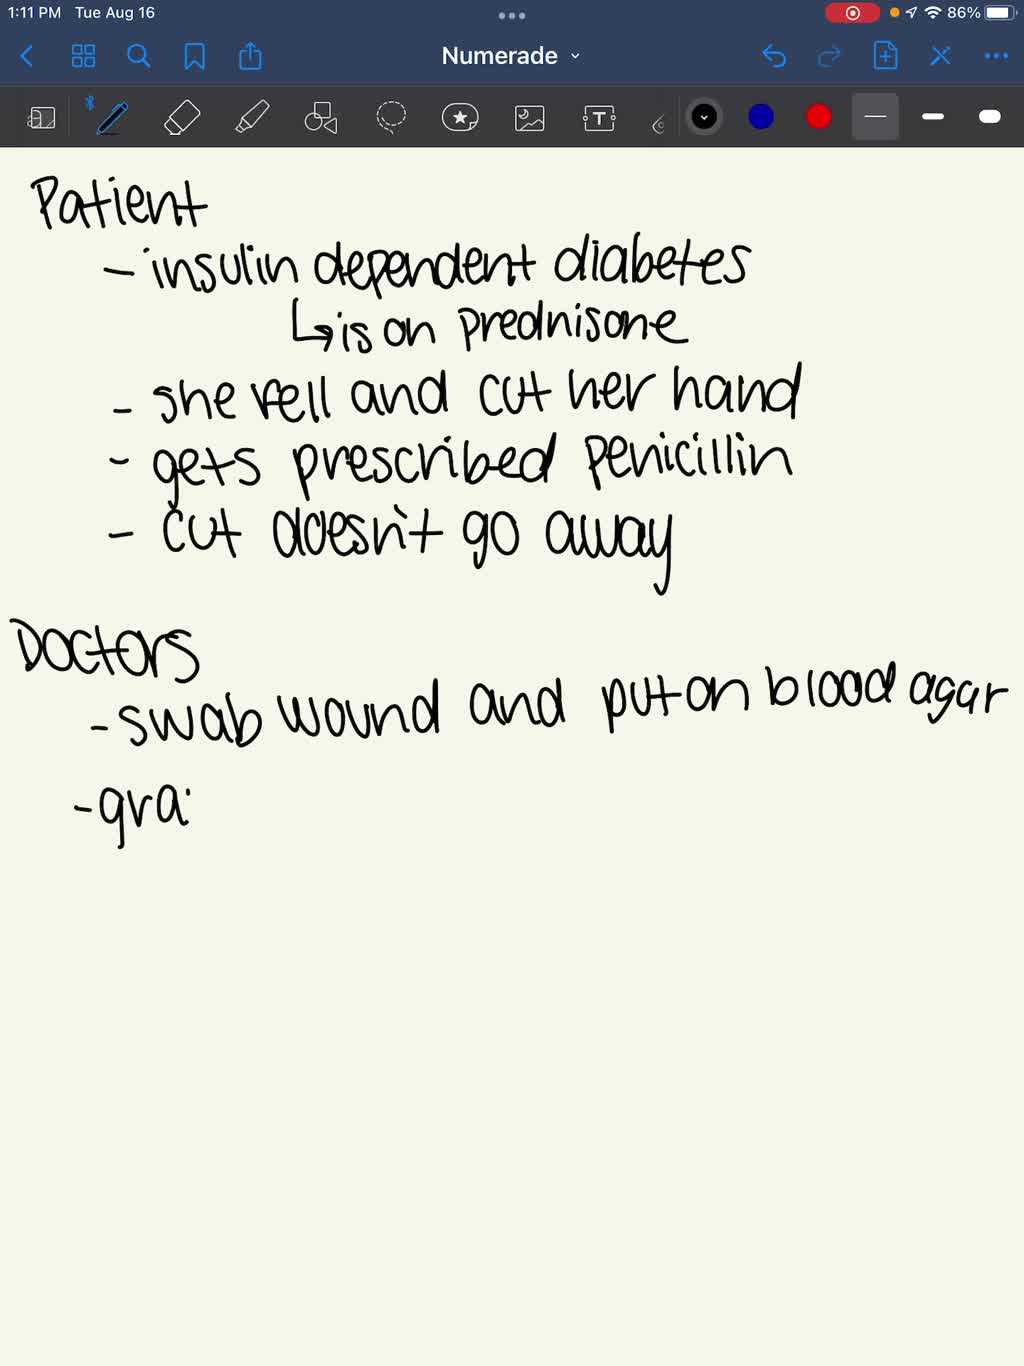 1:11 PM Tue Aug 16 86%
Numerade
T
Patient
- insulin dependent diabetes
↳ is on prednisone
- she fell and cut her hand
- gets prescribed penicillin
- cut doesn't go away
Doctors
- swab wound and put on blood agar
- gra